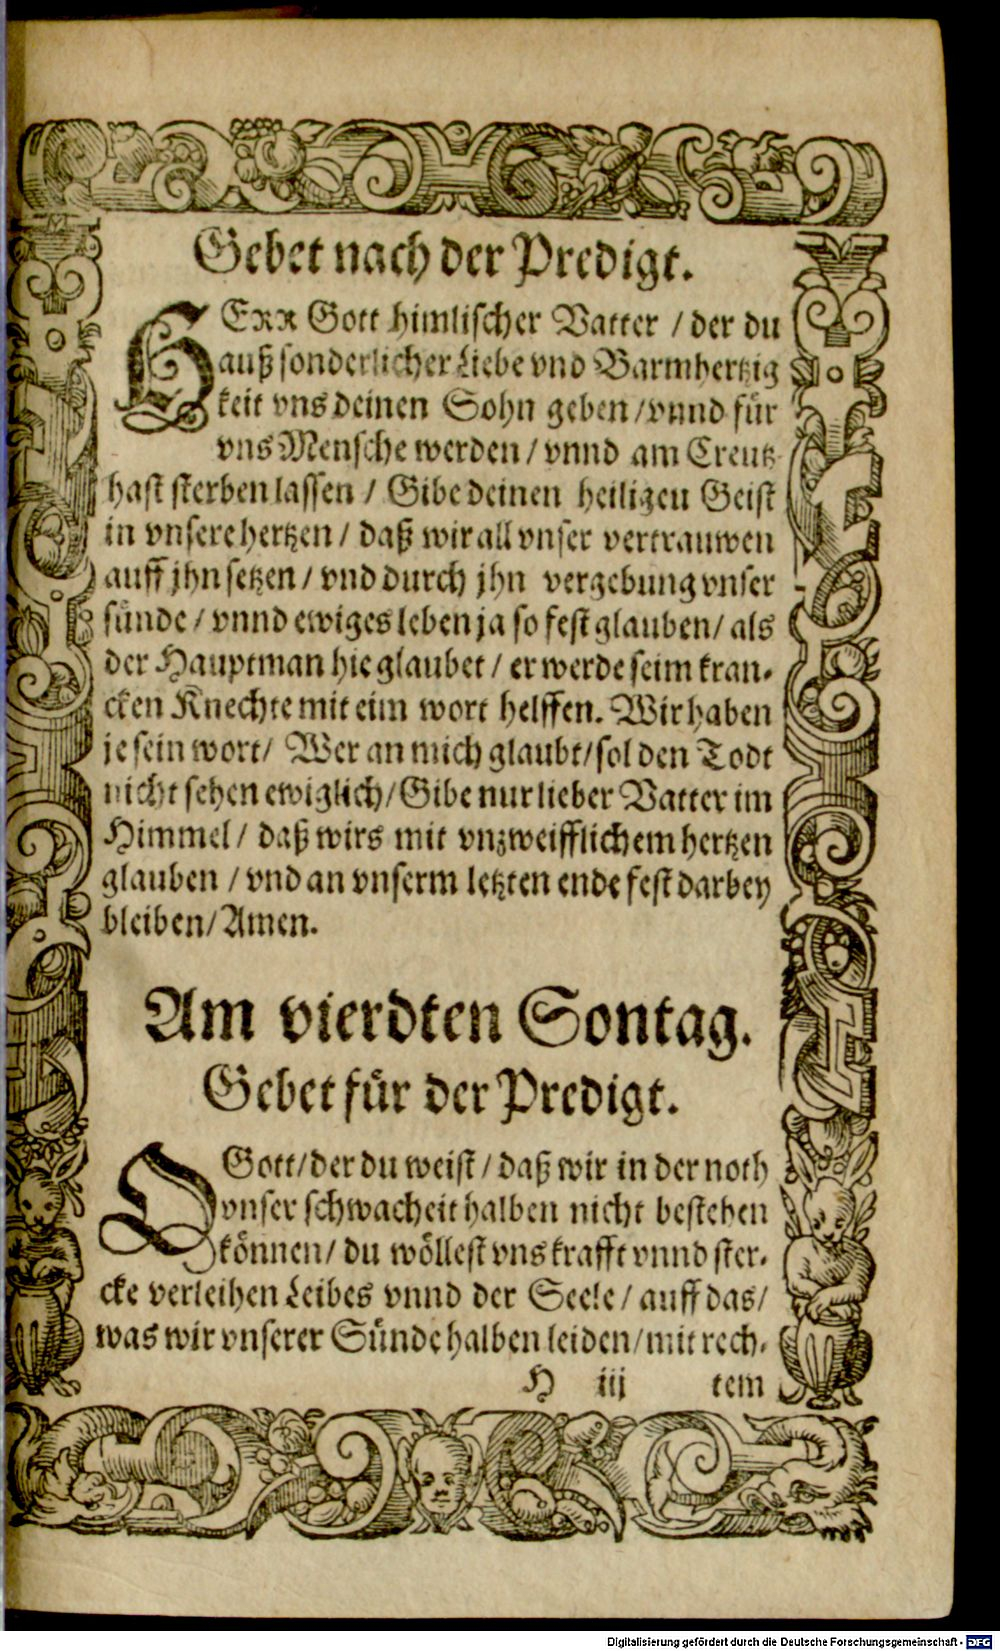 Gebet nach der Predigt.
HERR Gott himlischer Vatter / der du
auß sonderlicher Liebe vnd Barmhertzig
keit vns deinen Sohn geben / vnnd für
vns Mensche werden / vnnd am Creutz
hast sterben lassen / Gibe deinen heiligen Geist
in vnsere hertzen / daß wir all vnser vertrauwen
auff jhn setzen / vnd durch jhn vergebung vnser
sünde / vnnd ewiges leben ja so fest glauben / als
der Hauptman hie glaubet / er werde seim kran-
cken Knechte mit eim wort helffen. Wir haben
je sein wort / Wer an mich glaubt / sol den Todt
nicht sehen ewiglich / Gibe nur lieber Vatter im
Himmel / daß wirs mit vnzweifflichem hertzen
glauben / vnd an vnserm letzten ende fest darbey
bleiben / Amen.
Am vierdten Sontag.
Gebet für der Predigt.
O Gott / der du weist / daß wir in der noth
vnser schwacheit halben nicht bestehen
können / du wöllest vns krafft vnnd ster-
cke verleihen Leibes vnnd der Seele / auff das /
was wir vnserer Sünde halben leiden / mit rech-
H iij tem
Digitalisierung gefördert durch die Deutsche Forschungsgemeinschaft - DFG